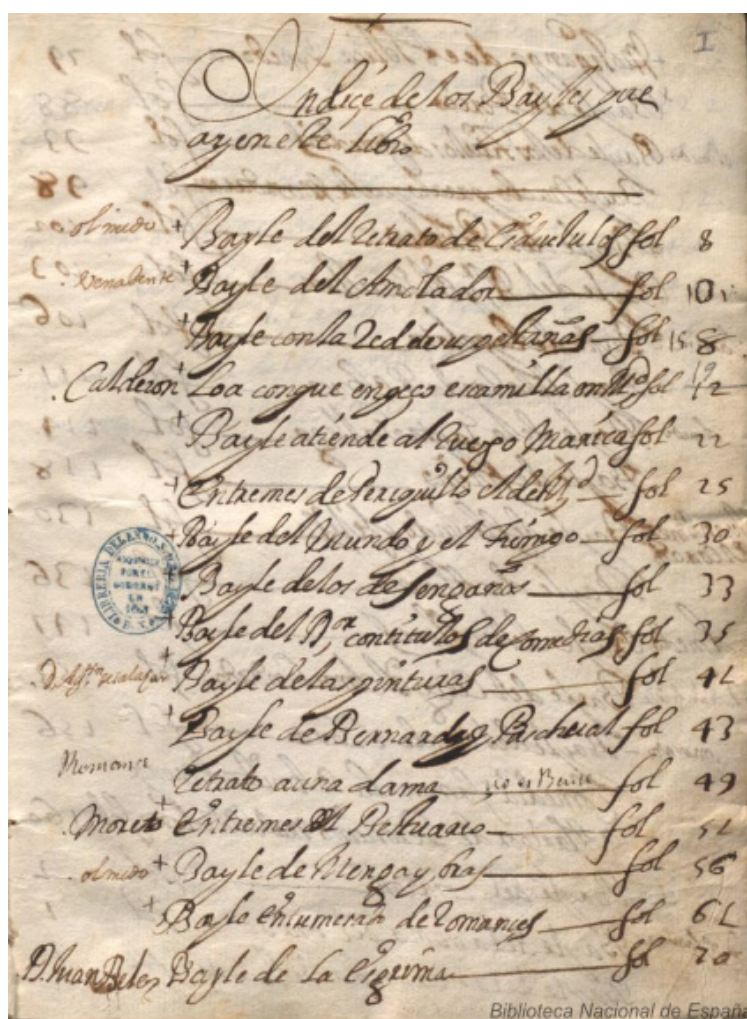 I
Indiçe de los Bayles que
ay en este libro
olmedo + Bayle del Retrato de fol 8
Benavente + Bayle del Amolador fol 101
+ Bayle con la Red de fol 158
Calderon + Loa con que enpeço escamilla en Md fol 12
+ Bayle atiende al Juego Marica fol 22
+ Entremes de Periquillo fol 25
+ Bayle del Mundo y el tiempo fol 30
+ Bayle de los desengaños fol 33
+ Bayle del Dr, con titulos de comedias fol 35
+ Bayle de las pinturas fol 41
+ Bayle de Bernarda y Paschual fol 43
Romance Retrato a una dama no es Baile fol 49
Moreto + Entremes del Bestuario fol 51
olmedo + Bayle de Menga y bras fol 56
+ Bayle de Romances fol 61
D. Juan Belez Bayle de La Esgrima 70
LIBRERIA DE
ADQUIRIDA
POR EL
GOBIERNO
EN
Biblioteca Nacional de España